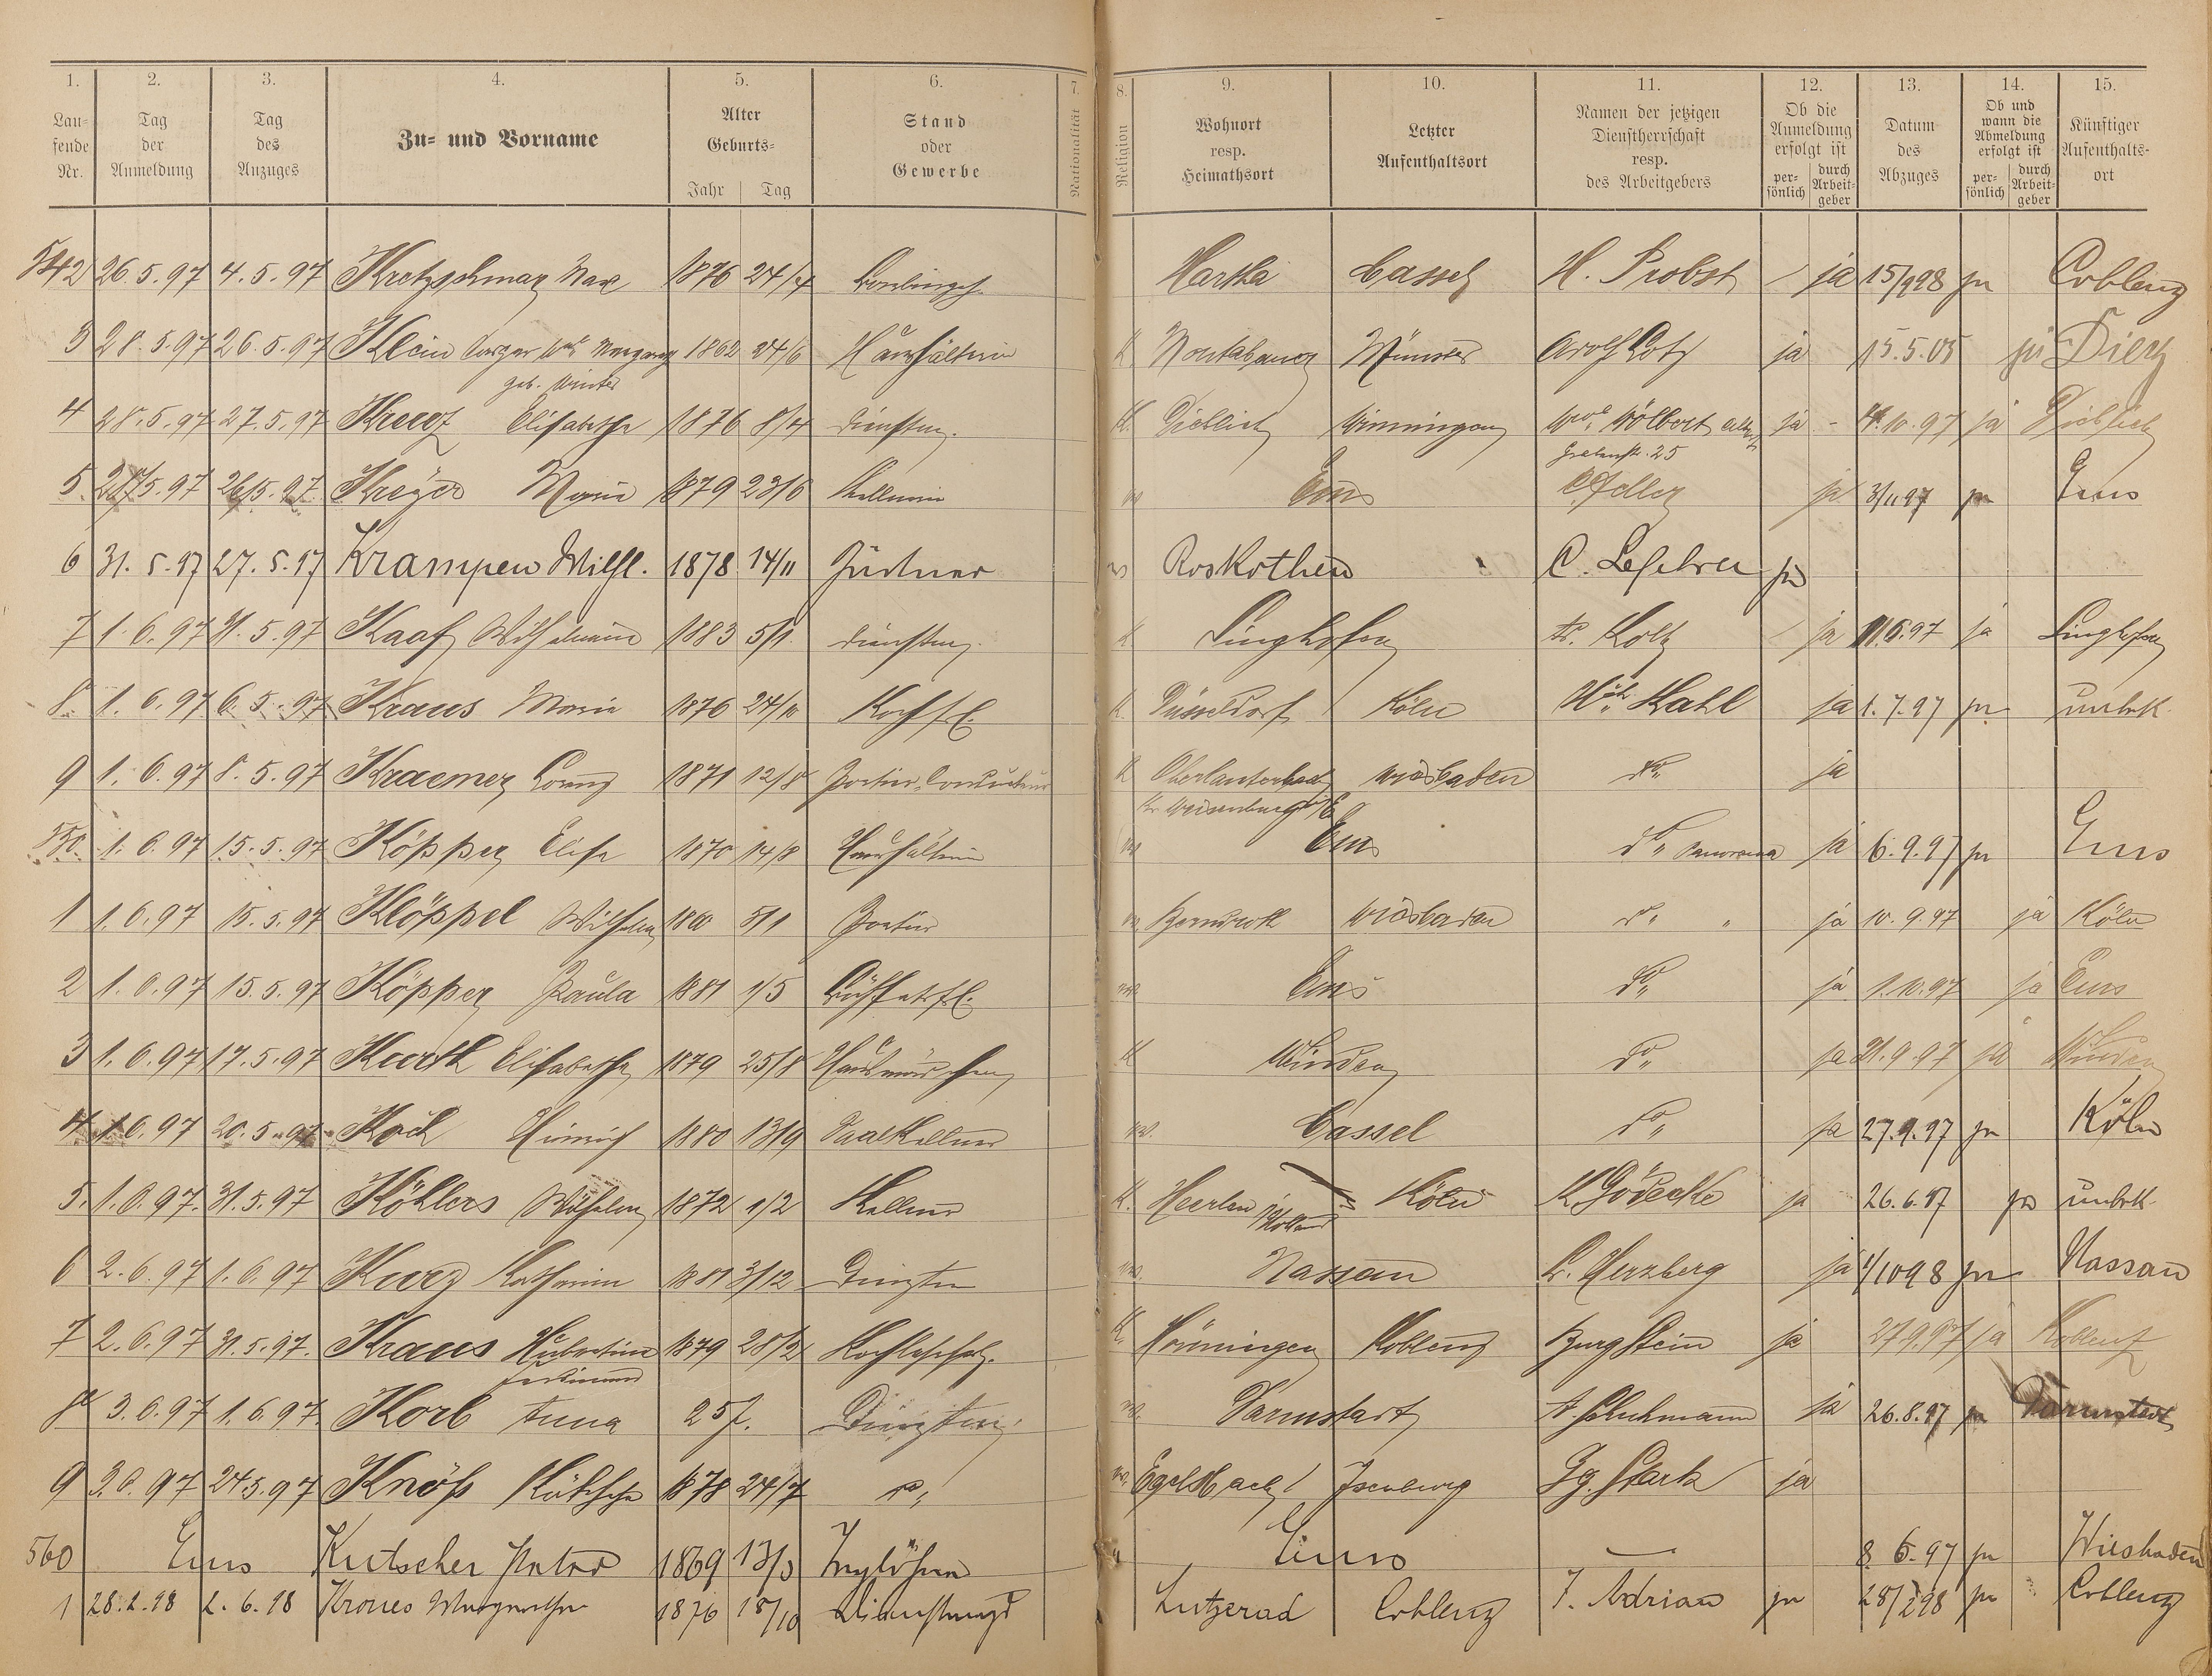 1. 2. 3. 4. 5. 6. 7. 8. 9. 10. 11. 12. 13. 14. 15.
Lau-
fende
Nr.
Tag
der
Anmeldung
Tag
des
Anzuges
Zu- und Vorname
Alter
Geburts-
Jahr Tag
Stand
oder
Gewerbe
Nationalität
Religion
Wohnort
resp.
Heimathsort
Letzter
Aufenthaltsort
Namen der jetzigen
Dienstherrschaft
resp.
des Arbeitgebers
Ob die
Anmeldung
erfolgt ist
per-
sönlich
durch
Arbeit-
geber
Datum
des
Abzuges
Ob und
wann die
Abmeldung
erfolgt ist
per-
sönlich
durch
Arbeit-
geber
Künftiger
Aufenthalts-
ort
542 26.5.97 4.5.97 Kretzschmar Max 1876 24/4 Hartha Cassel H. Probst ja 15/9 98 ja Coblenz
3 28.5.97 26.5.97 Klein 1862 24/6 Haushälterin K. Montabaur Münster Adolf ja 15.5.05 ja Diez
geb. Winter
4 28.5.97 27.5.97 Kreuz Elisabethe 1876 8/4 Dienstm. K. Dieblich Winningen Wwe. Wölbert ja - 4.10.97 ja Dieblich
25
5. 28/5.97 26/5.97 Kreyer Marie 1879 23/6 Kellnerin Ems ja 3/11 97 ja Ems
6 31.5.97 27.5.97 Krampen Wilh. 1878 14/11 Gärtner Roskothen C. Lefebre ja
7 1.6.97 31.5.97 Kaaf Wilhelmine 1883 5/1 Dienstm. K Singhofen ja 11.6.97 ja Singhofen
8. 1.6.97 6.5.97 Kraus Marie 1876 24/11 Kochfrl. K. Düsseldorf Köln Kahl ja 1.7.97 ja unbek.
9 1.6.97 8.5.97 Kraemer Lorenz 1871 12/8 Portier, Conducteur K Oberlauterbach Wiesbaden do„ ja
Kr. Weissenburg i/E
550. 1.6.97 15.5.97 Köpper Elise 1870 14/8 Haushälterin Ems do„ Panorama ja 6.9.97 ja Ems
1 1.6.97 15.5.97 Klöppel Wilhelm 5/1 Portier Wiesbaden do„ „ ja 10.9.97 ja Köln
2 1.6.97 15.5.97 Köpper Paula 1881 1/5 Büffetfrl. Ems do„ ja 1.10.97 ja Ems
3 1.6.97 17.5.97 Kurth Elisabethe 1879 25/8 Hausmädchen K Winden do„ ja 21.9.97 ja Winden
4 1.6.97 20.5.97 Koch Heinrich 1880 13/9 Saalkellner Cassel do„ ja 27.9.97 ja Köln
5. 1.6.97. 31.5.97 Köhlers Wilhelm 1872 1/2 Kellner K. Heerlen i/Holland Köln K. Gödecke ja 26.6.97 ja unbek.
6 2.6.97 1.6.97 Kurz Katharine 1881 3/12 Nassau L. Herzberg ja 1/10 98 ja Nassau
7 2.6.97 31.5.97. Kraus Hubertine 1879 28/2 K. Hönningen Koblenz Burg Stein ja 27.9.97 ja Koblenz
8 3.6.97 1.6.97 Korb Anna 25 J. Darmstadt ja 26.8.97 ja Darmstadt
9 3.6.97 24.5.97 Knöß Käthchen 1878 24/7 do„ Egelsbach Isenburg Gg. Stark ja
560 Ems Kutscher Peter 1869 13/3 Taglöhner „ Ems — 8.6.97 ja Wiesbaden
1 28.2.98 2.6.98 Krones Margarethe 1876 18/10 Dienstmagd Lutzerad Coblenz J. Adrian ja 28/2 98 ja Coblenz